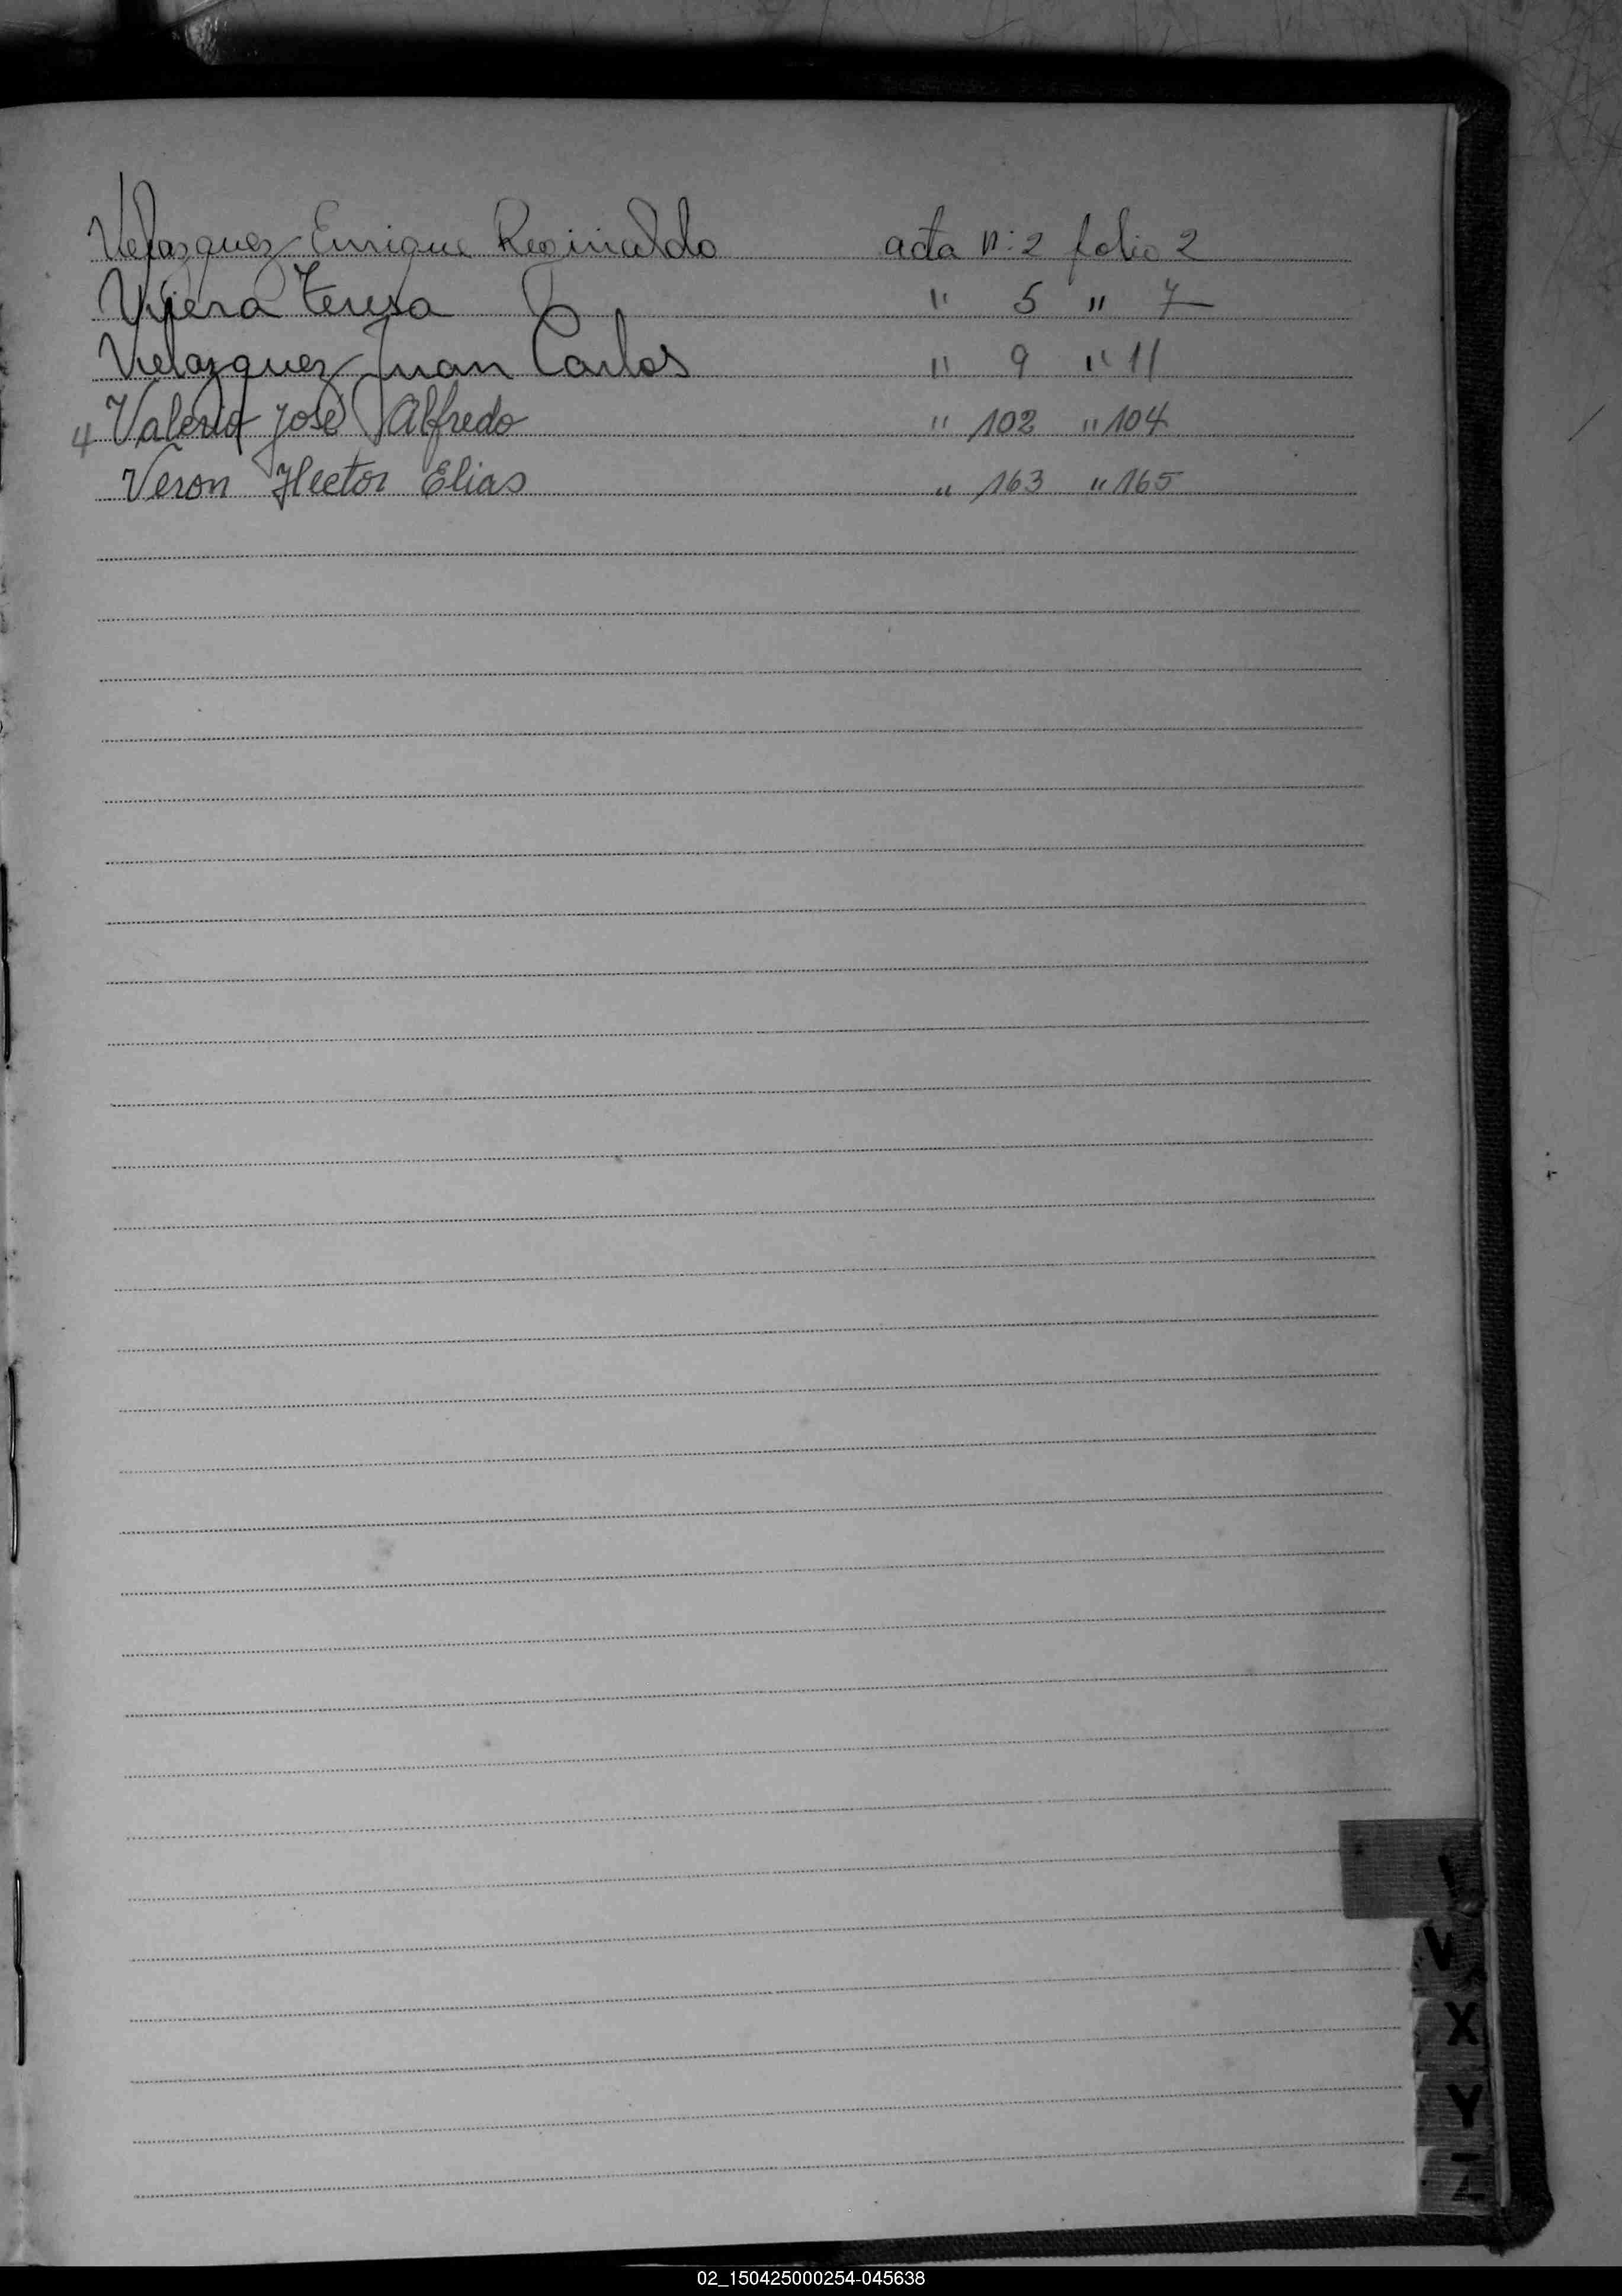 Velazquez Enrique Reginaldo acta n: 2 folio 2
Viera Teresa " 5 " 7
Velazquez Juan Carlos " 9 " 11
4 Valerio José Alfredo " 102 " 104
Veron Hector Elias " 163 " 165
V
X
Y
Z
02_150425000254-045638